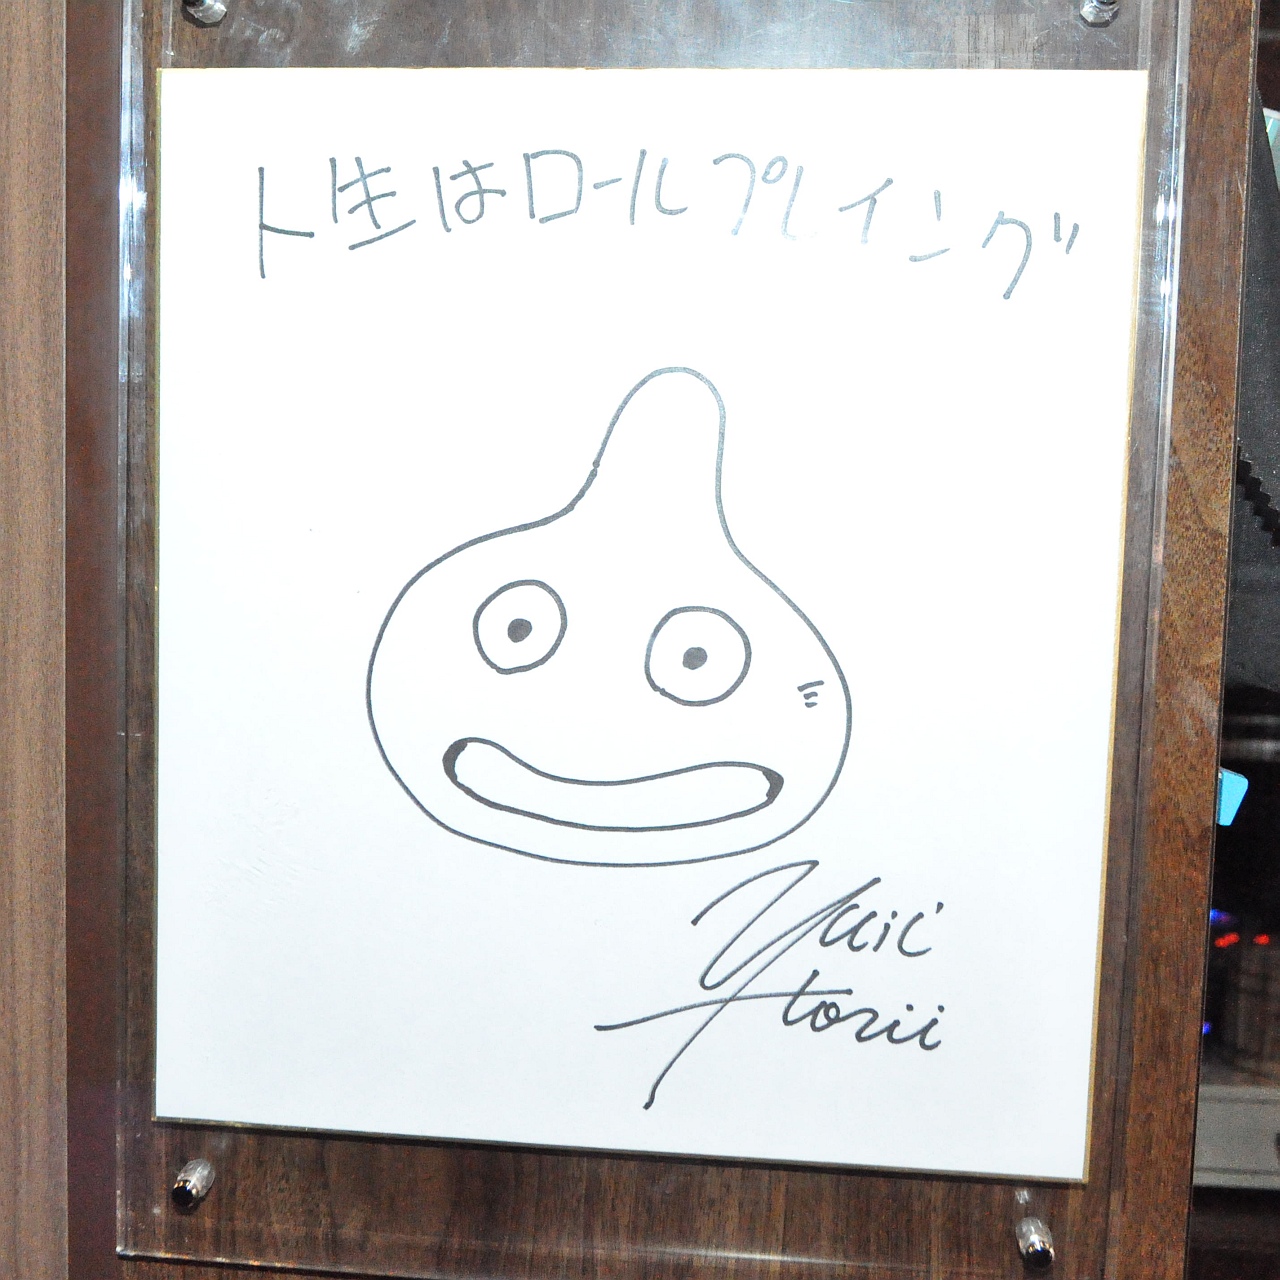 人生はロールプレイング
Yuji
Horii